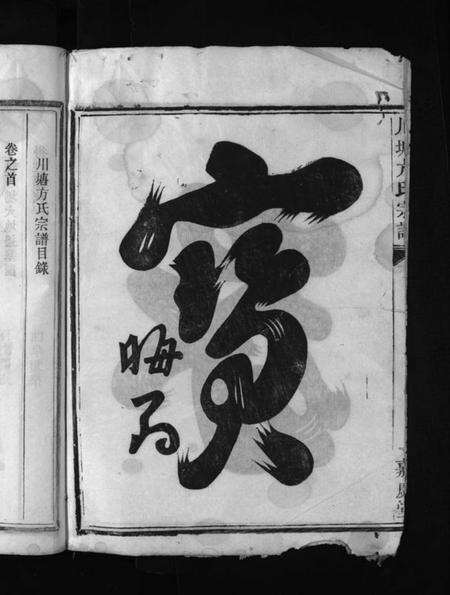 川塘方氏宗譜
寳
晦
川塘方氏宗譜目錄
卷之首